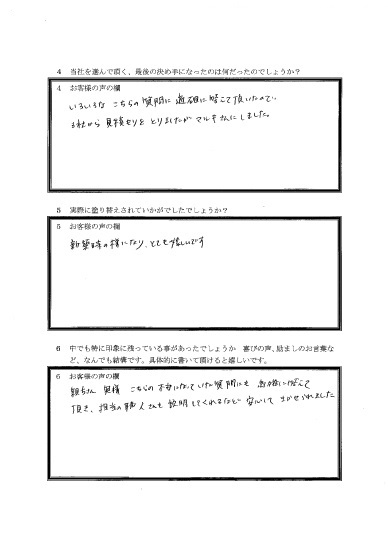 4 当社を選んで頂く、最後の決め手になったのは何だったのでしょうか？
4 お客様の声の欄
いろいろな こちらの質問に 適確に答えて頂いたので、
3社から 見積もりを とりましたが マルキさんにしました。
5 実際に塗り替えされていかがでしたでしょうか？
5 お客様の声の欄
新築時の様になり、とても嬉しいです
6 中でも特に印象に残っている事があったでしょうか 喜びの声、励ましのお言葉な
ど、なんでも結構です。具体的に書いて頂けると嬉しいです。
6 お客様の声の欄
こちらの不安になっていた質問にも 適確に答えて
頂き、担当の職人さんも説明してくれるなど 安心して まかせられました